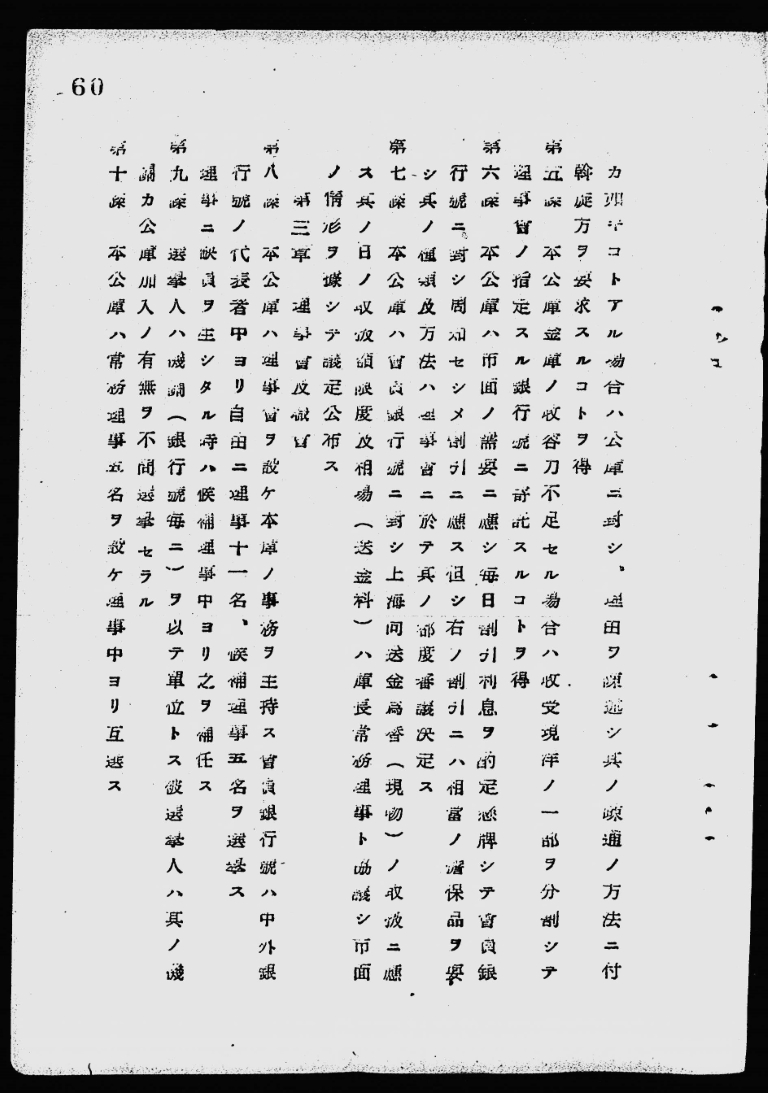 60
カ如キコトアル場合ハ公庫ニ対シ、理由ヲ陳述シ其ノ疎通ノ方法ニ付
斡旋方ヲ要求スルコトヲ得
第五條 本公庫金庫ノ收容力不足セル場合ハ收受現洋ノ一部ヲ分割シテ
理事會ノ指定スル銀行號ニ寄託スルコトヲ得
第六條 本公庫ハ市面ノ需要ニ應シ毎日割引利息ヲ的定懸牌シテ會員銀
行號ニ對シ周知セシメ割引ニ應ス但シ右ノ割引ニハ相當ノ擔保品ヲ要
シ其ノ種類及方法ハ理事會ニ於テ其ノ都度審議決定ス
第七條 本公庫ハ會員銀行號ニ對シ上海向送金爲替(現物)ノ取扱ニ應
ス其ノ日ノ取扱額限度及相場(送金料)ハ庫長常務理事ト協議シ市面
ノ情形ヲ據シテ議定公布ス
第三章 理事會及總會
第八條 本公庫ハ理事會ヲ設ケ本庫ノ事務ヲ主持ス會員銀行號ハ中外銀
行號ノ代表者中ヨリ自由ニ理事十一名、候補理事五名ヲ選擧ス
理事ニ缺員ヲ生シタル時ハ候補理事中ヨリ之ヲ補任ス
第九條 選擧人ハ機關(銀行號毎ニ)ヲ以テ單位トス被選擧人ハ其ノ機
關カ公庫加入ノ有無ヲ不問選擧セラル
第十條 本公庫ハ常務理事五名ヲ設ケ理事中ヨリ互選ス